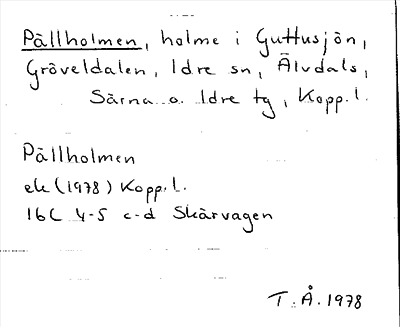 Pållholmen, holme i Guttusjön,
Gröveldalen, Idre sn, Älvdals,
Särna o. Idre tg, Kopp. l.
Pållholmen
ek (1978) Kopp. l.
16C 4-5 c-d Skärvagen
T. Å. 1978